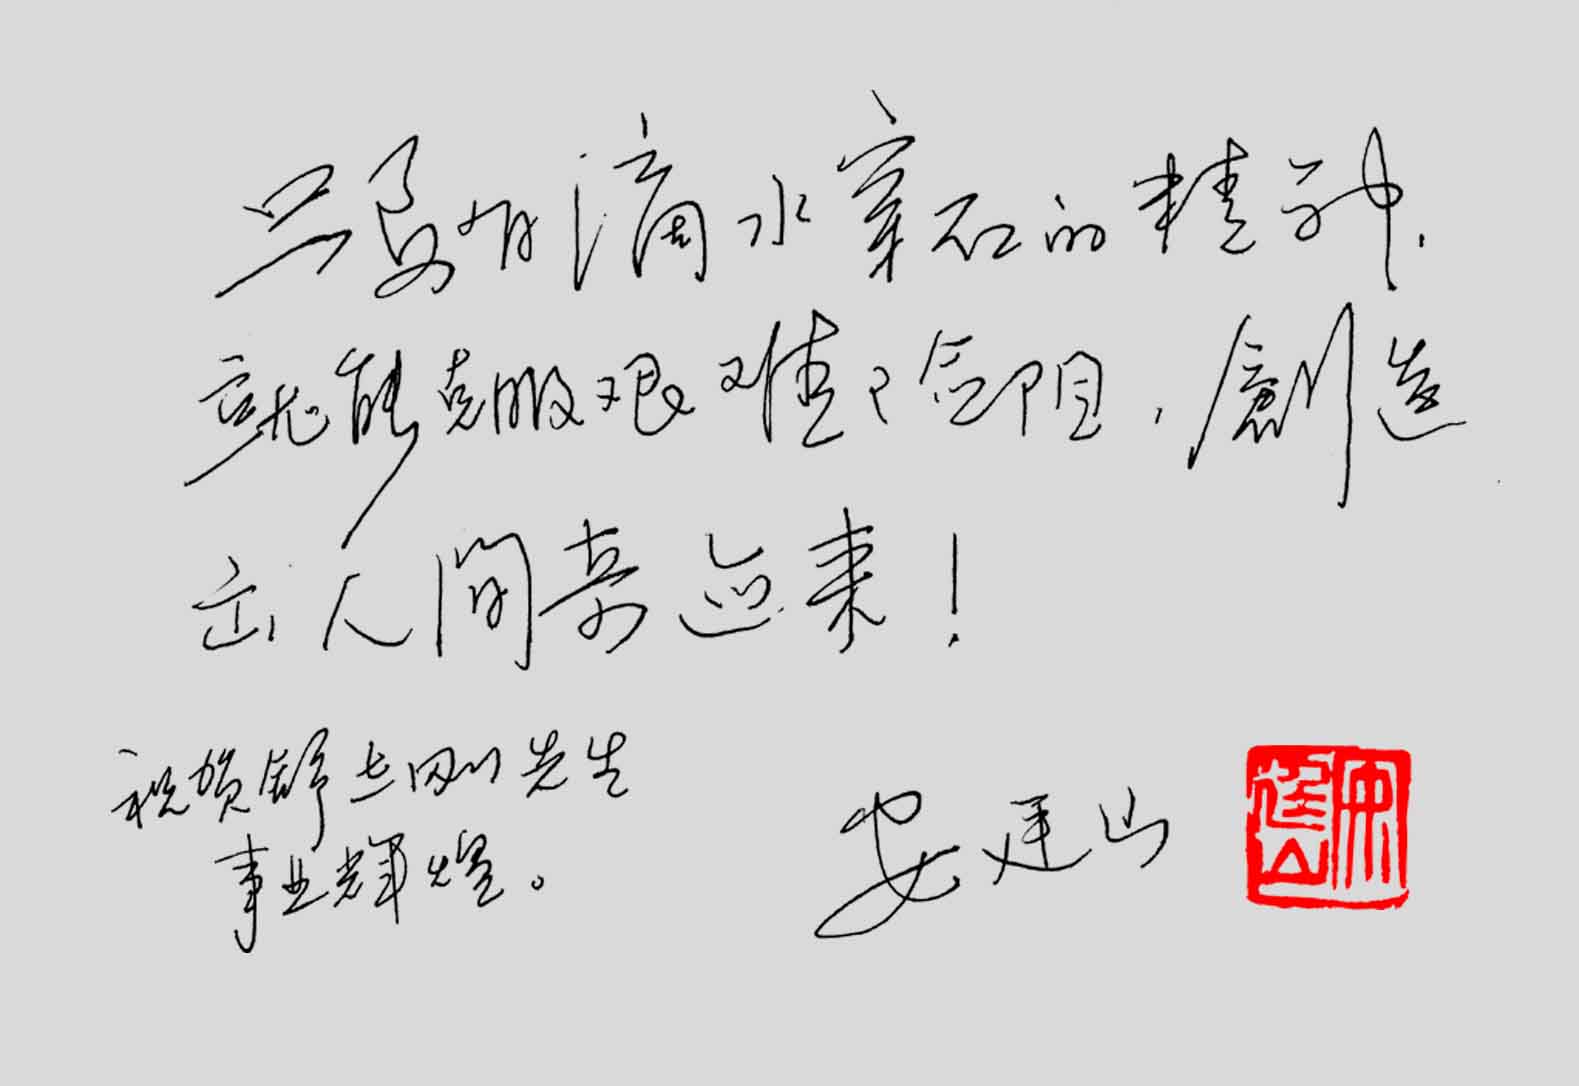 只要有滴水穿石的精神，
就能克服艰难险阻，創造
出人間奇迹来！
祝贺舒刚先生
事业辉煌。
安廷山
安廷山